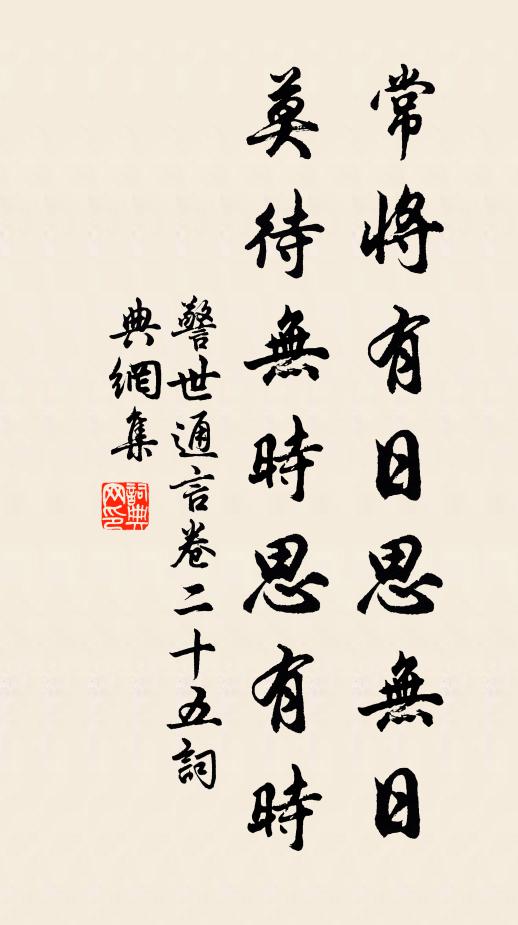 常將有日思無日
莫待無時思有時
警世通言卷二十五詞
典網集
詞典網印